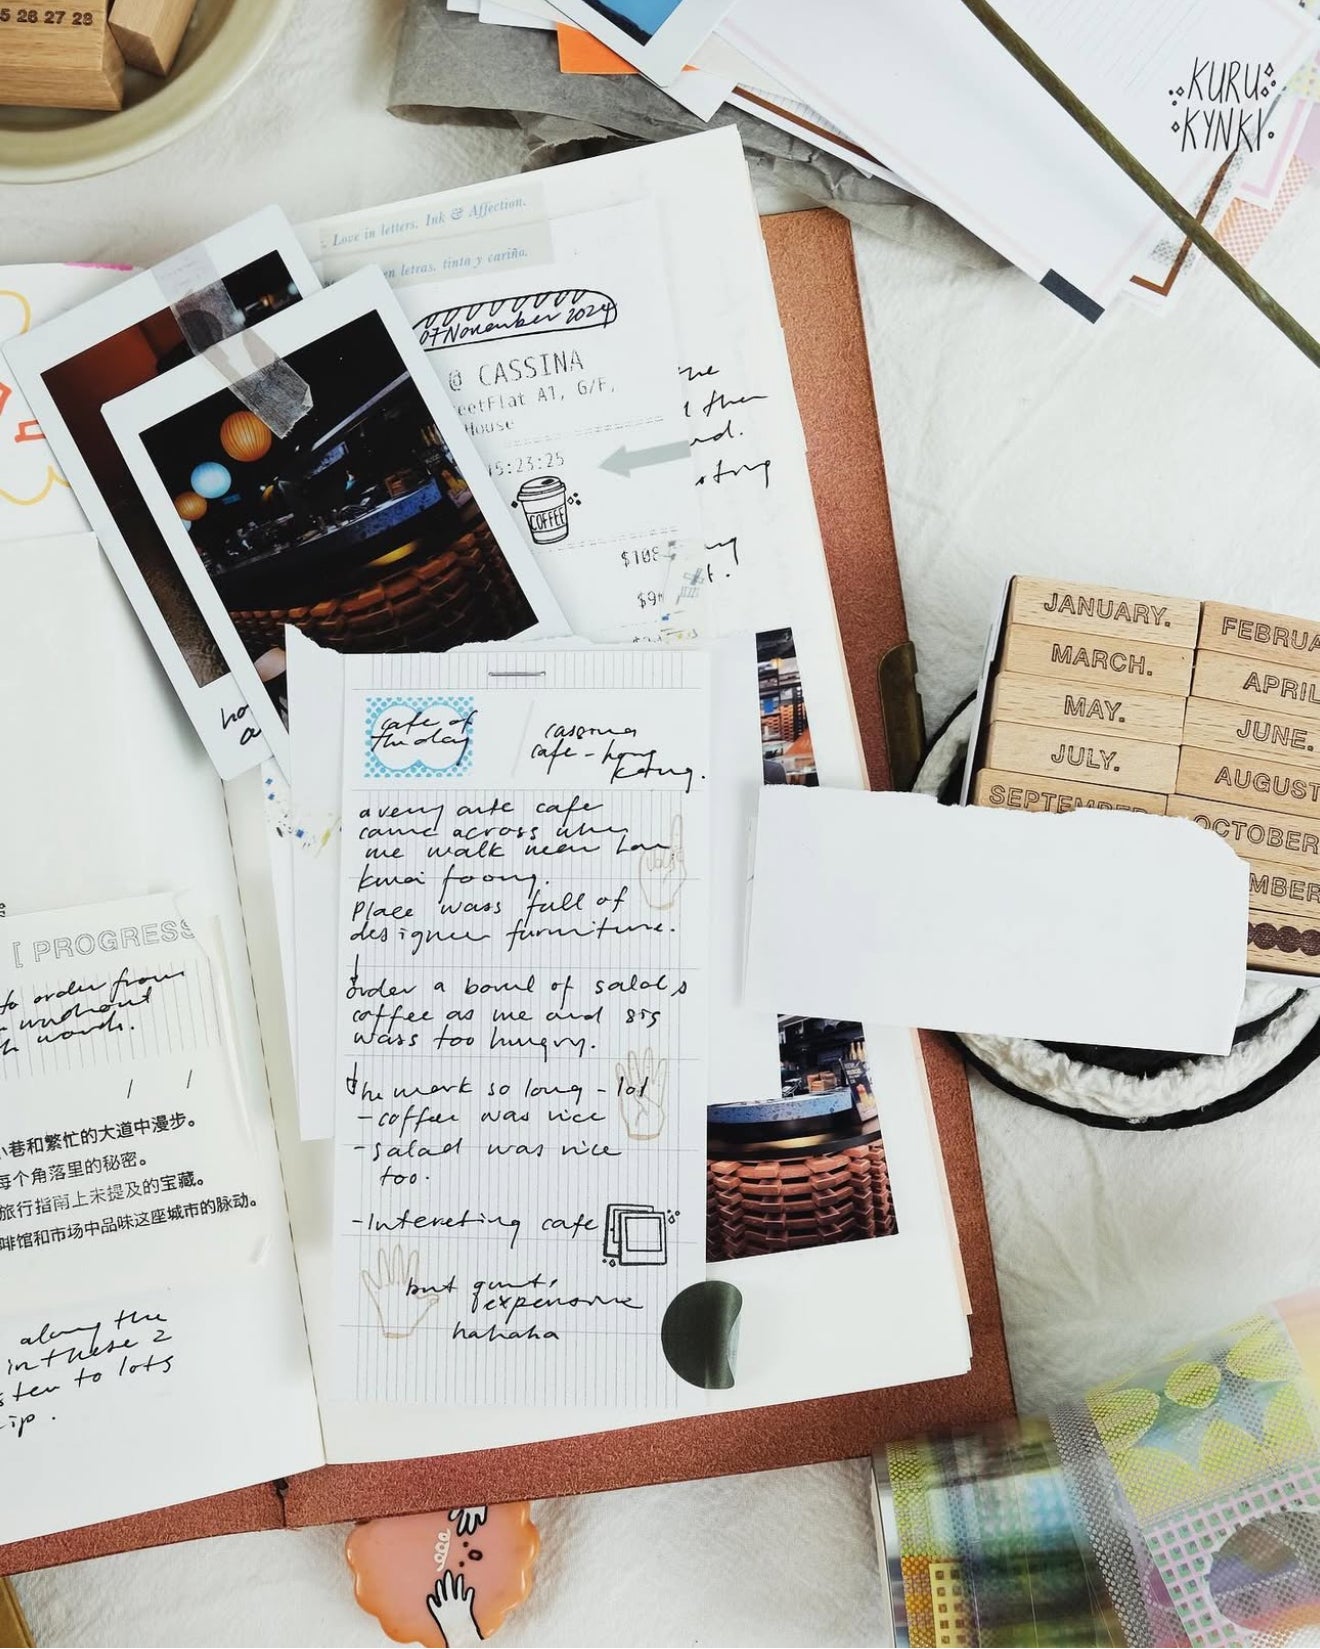 5 26 27 28
KURU
KYNKI
Love in letters. Ink & Affection.
en letras, tinta y cariño.
07 November 2024
@ CASSINA
eetFlat A1, G/F,
House
15:23:25
COFFEE
JANUARY.
FEBRUA
MARCH.
APRIL
MAY.
JUNE.
JULY.
AUGUST
SEPTEMBER
OCTOBER
MBER
cafe of
the day
cassina
cafe - hong
kong.
a very cute cafe
came across when
me walk near
kwai foong.
Place wass full of
designer furniture.
order a bowl of salads
coffee as me and sis
wass too hungry.
the mark so long - lol
- coffee was nice
- salad was nice
too.
- Interesting cafe
but quite
expensive
hahaha
[ PROGRESS
to order from
without
words.
小巷和繁忙的大道中漫步。
每个角落里的秘密。
旅行指南上未提及的宝藏。
啡馆和市场中品味这座城市的脉动。
along the
in these 2
sten to lots
ip.